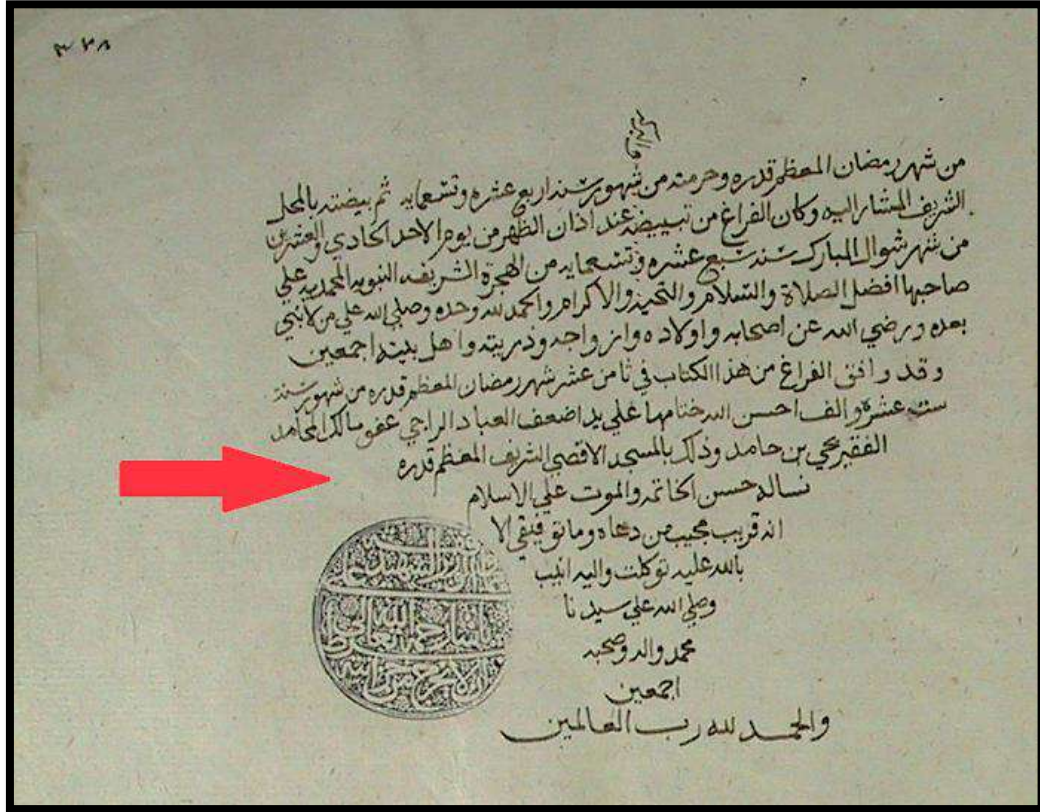 ٣٣٨
من شهر رمضان المعظم قدره وحرمته من شهور سنة اربع عشره وتسعمايه ثم بيضته بالمحل
الشريف المشار اليه وكان الفراغ من تبييضه عند اذان الظهر من يوم الاحد الحادي والعشرين
من شهر شوال المبارك سنة سبع عشره وتسعمايه من الهجرة الشريفه النبويه المحمديه علي
صاحبها افضل الصلاة والسلام والتحيه والاكرام والحمد لله وحده وصلي الله علي من لا نبي
بعده ورضي الله عن اصحابه واولاده وازواجه وذريته واهل بيته اجمعين
وقد وافق الفراغ من هذا الكتاب في ثامن عشر شهر رمضان المعظم قدره من شهور سنة
ست عشرة والف احسن الله ختامها علي يد اضعف العباد الراجي عفو مالك المحامد
الفقير بن حامد وذلك بالمسجد الاقصي الشريف المعظم قدره
نساله حسن الخاتمه والموت علي الاسلام
انه قريب مجيب من دعاه وما توفيقي الا
بالله عليه توكلت واليه انيب
وصلي الله علي سيدنا
محمد واله وصحبه
اجمعين
والحمد لله رب العالمين